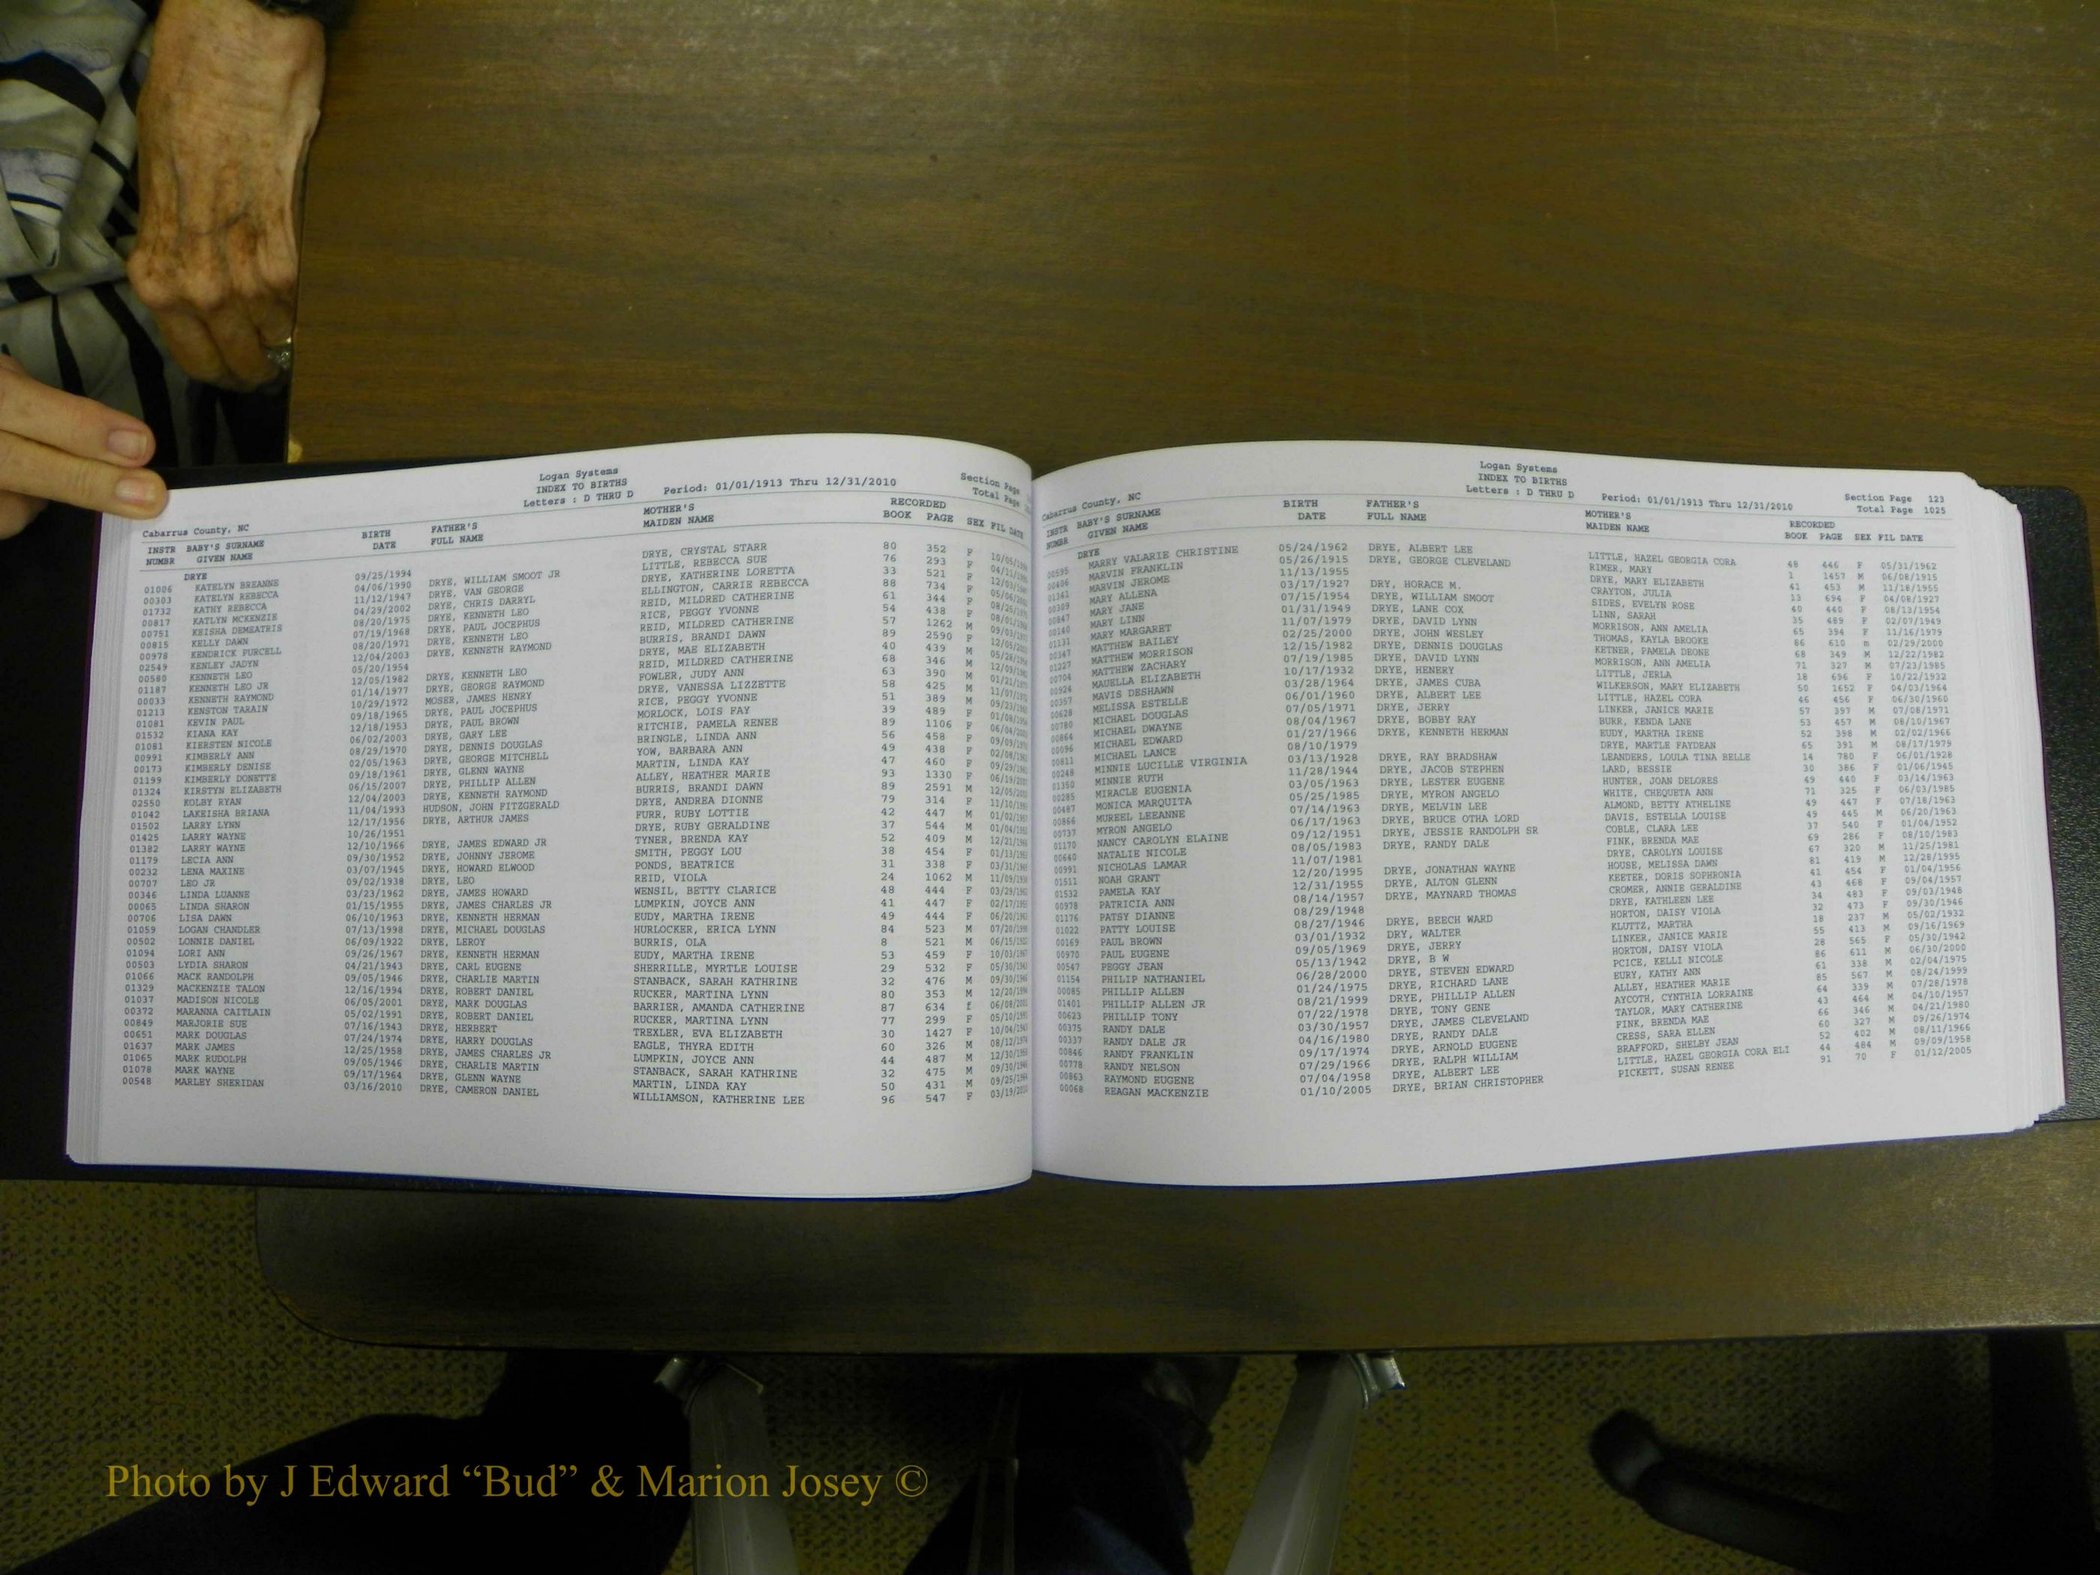 Logan Systems
INDEX TO BIRTHS
Letters : D THRU D Period: 01/01/1913 Thru 12/31/2010
Section Page
Total Page
Cabarrus County, NC
INSTR BABY'S SURNAME BIRTH FATHER'S MOTHER'S RECORDED
NUMBR GIVEN NAME DATE FULL NAME MAIDEN NAME BOOK PAGE SEX FIL DATE
DRYE
01006 KATELYN BREANNE 09/25/1994 DRYE, CRYSTAL STARR 80 352 F
00303 KATELYN REBECCA 04/06/1990 DRYE, WILLIAM SMOOT JR LITTLE, REBECCA SUE 76 293 F
01732 KATHY REBECCA 11/12/1947 DRYE, VAN GEORGE DRYE, KATHERINE LORETTA 33 521 F
00817 KATLYN MCKENZIE 04/29/2002 DRYE, CHRIS DARRYL ELLINGTON, CARRIE REBECCA 88 734 F
00751 KEISHA DEMEATRIS 08/20/1975 DRYE, KENNETH LEO REID, MILDRED CATHERINE 61 344 F
00815 KELLY DAWN 07/19/1968 DRYE, PAUL JOCEPHUS RICE, PEGGY YVONNE 54 438 F
00978 KENDRICK PURCELL 08/20/1971 DRYE, KENNETH LEO REID, MILDRED CATHERINE 57 1262 M
02549 KENLEY JADYN 12/04/2003 DRYE, KENNETH RAYMOND BURRIS, BRANDI DAWN 89 2590 F
00580 KENNETH LEO 05/20/1954 DRYE, MAE ELIZABETH 40 439 M
01187 KENNETH LEO JR 12/05/1982 DRYE, KENNETH LEO REID, MILDRED CATHERINE 68 346 M
00033 KENNETH RAYMOND 01/14/1977 DRYE, GEORGE RAYMOND FOWLER, JUDY ANN 63 390 M
01213 KENSTON TARAIN 10/29/1972 MOSER, JAMES HENRY DRYE, VANESSA LIZZETTE 58 425 M
01081 KEVIN PAUL 09/18/1965 DRYE, PAUL JOCEPHUS RICE, PEGGY YVONNE 51 389 M
01532 KIANA KAY 12/18/1953 DRYE, PAUL BROWN MORLOCK, LOIS FAY 39 489 F
01081 KIERSTEN NICOLE 06/02/2003 DRYE, GARY LEE RITCHIE, PAMELA RENEE 89 1106 F
00991 KIMBERLY ANN 08/29/1970 DRYE, DENNIS DOUGLAS BRINGLE, LINDA ANN 56 458 F
00173 KIMBERLY DENISE 02/05/1963 DRYE, GEORGE MITCHELL YOW, BARBARA ANN 49 438 F
01199 KIMBERLY DONETTE 09/18/1961 DRYE, GLENN WAYNE MARTIN, LINDA KAY 47 460 F
01324 KIRSTYN ELIZABETH 06/15/2007 DRYE, PHILLIP ALLEN ALLEY, HEATHER MARIE 93 1330 F
02550 KOLBY RYAN 12/04/2003 DRYE, KENNETH RAYMOND BURRIS, BRANDI DAWN 89 2591 M
01042 LAKEISHA BRIANA 11/04/1993 HUDSON, JOHN FITZGERALD DRYE, ANDREA DIONNE 79 314 F
01502 LARRY LYNN 12/17/1956 DRYE, ARTHUR JAMES FURR, RUBY LOTTIE 42 447 M
01425 LARRY WAYNE 10/26/1951 DRYE, RUBY GERALDINE 37 544 M
01382 LARRY WAYNE 12/10/1966 DRYE, JAMES EDWARD JR TYNER, BRENDA KAY 52 409 M
01179 LECIA ANN 09/30/1952 DRYE, JOHNNY JEROME SMITH, PEGGY LOU 38 454 F
00232 LENA MAXINE 03/07/1945 DRYE, HOWARD ELWOOD PONDS, BEATRICE 31 338 F
00707 LEO JR 09/02/1938 DRYE, LEO REID, VIOLA 24 1062 M
00346 LINDA LUANNE 03/23/1962 DRYE, JAMES HOWARD WENSIL, BETTY CLARICE 48 444 F
00065 LINDA SHARON 01/15/1955 DRYE, JAMES CHARLES JR LUMPKIN, JOYCE ANN 41 447 F
00706 LISA DAWN 06/10/1963 DRYE, KENNETH HERMAN EUDY, MARTHA IRENE 49 444 F
01059 LOGAN CHANDLER 07/13/1998 DRYE, MICHAEL DOUGLAS HURLOCKER, ERICA LYNN 84 523 M
00502 LONNIE DANIEL 06/09/1922 DRYE, LEROY BURRIS, OLA 8 521 M
01094 LORI ANN 09/26/1967 DRYE, KENNETH HERMAN EUDY, MARTHA IRENE 53 459 F
00503 LYDIA SHARON 04/21/1943 DRYE, CARL EUGENE SHERRILLE, MYRTLE LOUISE 29 532 F
01066 MACK RANDOLPH 09/05/1946 DRYE, CHARLIE MARTIN STANBACK, SARAH KATHRINE 32 476 M
01329 MACKENZIE TALON 12/16/1994 DRYE, ROBERT DANIEL RUCKER, MARTINA LYNN 80 353 M
01037 MADISON NICOLE 06/05/2001 DRYE, MARK DOUGLAS BARRIER, AMANDA CATHERINE 87 634 f
00372 MARANNA CAITLAIN 05/02/1991 DRYE, ROBERT DANIEL RUCKER, MARTINA LYNN 77 299 F
00849 MARJORIE SUE 07/16/1943 DRYE, HERBERT TREXLER, EVA ELIZABETH 30 1427 F
00651 MARK DOUGLAS 07/24/1974 DRYE, HARRY DOUGLAS EAGLE, THYRA EDITH 60 326 M
01637 MARK JAMES 12/25/1958 DRYE, JAMES CHARLES JR LUMPKIN, JOYCE ANN 44 487 M
01065 MARK RUDOLPH 09/05/1946 DRYE, CHARLIE MARTIN STANBACK, SARAH KATHRINE 32 475 M
01078 MARK WAYNE 09/17/1964 DRYE, GLENN WAYNE MARTIN, LINDA KAY 50 431 M
00548 MARLEY SHERIDAN 03/16/2010 DRYE, CAMERON DANIEL WILLIAMSON, KATHERINE LEE 96 547 F
Logan Systems
INDEX TO BIRTHS
Letters : D THRU D Period: 01/01/1913 Thru 12/31/2010
Section Page 123
Total Page 1025
Cabarrus County, NC
INSTR BABY'S SURNAME BIRTH FATHER'S MOTHER'S RECORDED
NUMBR GIVEN NAME DATE FULL NAME MAIDEN NAME BOOK PAGE SEX FIL DATE
DRYE
00595 MARRY VALARIE CHRISTINE 05/24/1962 DRYE, ALBERT LEE LITTLE, HAZEL GEORGIA CORA 48 446 F 05/31/1962
00406 MARVIN FRANKLIN 05/26/1915 DRYE, GEORGE CLEVELAND RIMER, MARY 1 1457 M 06/08/1915
01361 MARVIN JEROME 11/13/1955 DRYE, MARY ELIZABETH 41 453 M 11/18/1955
00309 MARY ALLENA 03/17/1927 DRY, HORACE M. CRAYTON, JULIA 13 694 F 04/08/1927
00847 MARY JANE 07/15/1954 DRYE, WILLIAM SMOOT SIDES, EVELYN ROSE 40 440 F 08/13/1954
00140 MARY LINN 01/31/1949 DRYE, LANE COX LINN, SARAH 35 489 F 02/07/1949
01131 MARY MARGARET 11/07/1979 DRYE, DAVID LYNN MORRISON, ANN AMELIA 65 394 F 11/16/1979
00347 MATTHEW BAILEY 02/25/2000 DRYE, JOHN WESLEY THOMAS, KAYLA BROOKE 86 610 m 02/29/2000
01227 MATTHEW MORRISON 12/15/1982 DRYE, DENNIS DOUGLAS KETNER, PAMELA DEONE 68 349 M 12/22/1982
00704 MATTHEW ZACHARY 07/19/1985 DRYE, DAVID LYNN MORRISON, ANN AMELIA 71 327 M 07/23/1985
00924 MAUELLA ELIZABETH 10/17/1932 DRYE, HENERY LITTLE, JERLA 18 696 F 10/22/1932
00357 MAVIS DESHAWN 03/28/1964 DRYE, JAMES CUBA WILKERSON, MARY ELIZABETH 50 1652 F 04/03/1964
00628 MELISSA ESTELLE 06/01/1960 DRYE, ALBERT LEE LITTLE, HAZEL CORA 46 456 F 06/30/1960
00780 MICHAEL DOUGLAS 07/05/1971 DRYE, JERRY LINKER, JANICE MARIE 57 397 M 07/08/1971
00864 MICHAEL DWAYNE 08/04/1967 DRYE, BOBBY RAY BURR, KENDA LANE 53 457 M 08/10/1967
00096 MICHAEL EDWARD 01/27/1966 DRYE, KENNETH HERMAN EUDY, MARTHA IRENE 52 398 M 02/02/1966
00811 MICHAEL LANCE 08/10/1979 DRYE, MARTLE FAYDEAN 65 391 M 08/17/1979
00248 MINNIE LUCILLE VIRGINIA 03/13/1928 DRYE, RAY BRADSHAW LEANDERS, LOULA TINA BELLE 14 780 F 06/01/1928
01350 MINNIE RUTH 11/28/1944 DRYE, JACOB STEPHEN LARD, BESSIE 30 386 F 01/06/1945
00285 MIRACLE EUGENIA 03/05/1963 DRYE, LESTER EUGENE HUNTER, JOAN DELORES 49 440 F 03/14/1963
00487 MONICA MARQUITA 05/25/1985 DRYE, MYRON ANGELO WHITE, CHEQUETA ANN 71 325 F 06/03/1985
00866 MUREEL LEEANNE 07/14/1963 DRYE, MELVIN LEE ALMOND, BETTY ATHELINE 49 447 F 07/18/1963
00737 MYRON ANGELO 06/17/1963 DRYE, BRUCE OTHA LORD DAVIS, ESTELLA LOUISE 49 445 M 06/20/1963
01170 NANCY CAROLYN ELAINE 09/12/1951 DRYE, JESSIE RANDOLPH SR COBLE, CLARA LEE 37 540 F 01/04/1952
00640 NATALIE NICOLE 08/05/1983 DRYE, RANDY DALE FINK, BRENDA MAE 69 286 F 08/10/1983
00991 NICHOLAS LAMAR 11/07/1981 DRYE, CAROLYN LOUISE 67 320 M 11/25/1981
01511 NOAH GRANT 12/20/1995 DRYE, JONATHAN WAYNE HOUSE, MELISSA DAWN 81 419 M 12/28/1995
01532 PAMELA KAY 12/31/1955 DRYE, ALTON GLENN KEETER, DORIS SOPHRONIA 41 454 F 01/04/1956
00978 PATRICIA ANN 08/14/1957 DRYE, MAYNARD THOMAS CROMER, ANNIE GERALDINE 43 468 F 09/04/1957
01176 PATSY DIANNE 08/29/1948 DRYE, KATHLEEN LEE 34 483 F 09/03/1948
01022 PATTY LOUISE 08/27/1946 DRYE, BEECH WARD HORTON, DAISY VIOLA 32 473 F 09/30/1946
00169 PAUL BROWN 03/01/1932 DRY, WALTER KLUTTZ, MARTHA 18 237 M 05/02/1932
00970 PAUL EUGENE 09/05/1969 DRYE, JERRY LINKER, JANICE MARIE 55 413 M 09/16/1969
00547 PEGGY JEAN 05/13/1942 DRYE, B W HORTON, DAISY VIOLA 28 565 F 05/30/1942
01154 PHILIP NATHANIEL 06/28/2000 DRYE, STEVEN EDWARD PCICE, KELLI NICOLE 86 611 M 06/30/2000
00085 PHILLIP ALLEN 01/24/1975 DRYE, RICHARD LANE EURY, KATHY ANN 61 338 M 02/04/1975
01401 PHILLIP ALLEN JR 08/21/1999 DRYE, PHILLIP ALLEN ALLEY, HEATHER MARIE 85 567 M 08/24/1999
00623 PHILLIP TONY 07/22/1978 DRYE, TONY GENE AYCOTH, CYNTHIA LORRAINE 64 339 M 07/28/1978
00375 RANDY DALE 03/30/1957 DRYE, JAMES CLEVELAND TAYLOR, MARY CATHERINE 43 464 M 04/10/1957
00337 RANDY DALE JR 04/16/1980 DRYE, RANDY DALE FINK, BRENDA MAE 66 346 M 04/21/1980
00846 RANDY FRANKLIN 09/17/1974 DRYE, ARNOLD EUGENE CRESS, SARA ELLEN 60 327 M 09/26/1974
00778 RANDY NELSON 07/29/1966 DRYE, RALPH WILLIAM BRAFFORD, SHELBY JEAN 52 402 M 08/11/1966
00863 RAYMOND EUGENE 07/04/1958 DRYE, ALBERT LEE LITTLE, HAZEL GEORGIA CORA ELI 44 484 M 09/09/1958
00068 REAGAN MACKENZIE 01/10/2005 DRYE, BRIAN CHRISTOPHER PICKETT, SUSAN RENEE 91 70 F 01/12/2005
Photo by J Edward “Bud” & Marion Josey ©